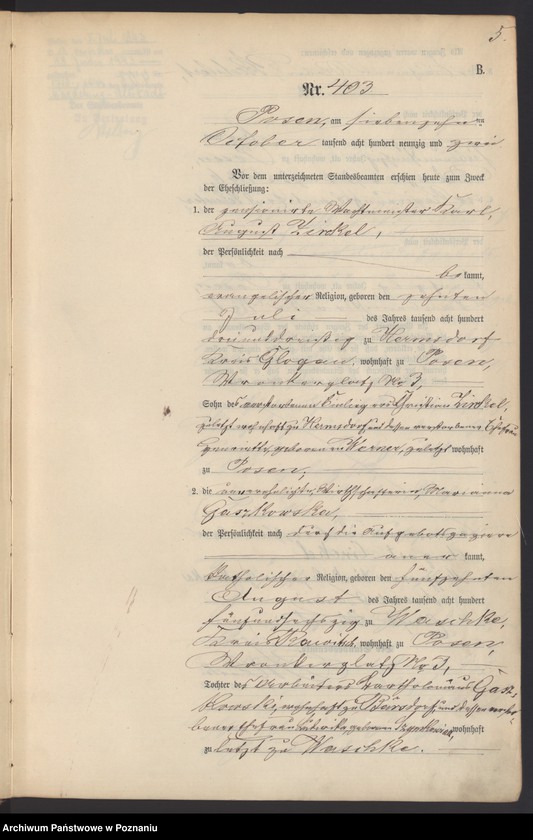 5.
B.
Nr. 403
Posen, am siebenzehnten
October tausend acht hundert neunzig und zwei
Vor dem unterzeichneten Standesbeamten erschien heute zum Zweck
der Eheschließung:
1. der pensionirte Wachtmeister Karl
August Zinkel,
der Persönlichkeit nach
bekannt,
evangelischer Religion, geboren den zehnten
Juli des Jahres tausend acht hundert
dreiunddreißig zu Hermsdorf
Kreis Glogau, wohnhaft zu Posen,
Wronkerplatz No 3,
Sohn des verstorbenen Christian Zinkel,
zuletzt wohnhaft zu Hermsdorf und dessen verstorbener Ehefrau
geborenen Werner, zuletzt wohnhaft
zu Posen,
2. die unverehelichte Wirthschafterin Marianna
Gaszkowska,
der Persönlichkeit nach durch die Aufgebotspapiere
anerkannt,
katholischer Religion, geboren den fünfzehnten
August des Jahres tausend acht hundert
fünfundsechszig zu Waschke,
Kreis Rawitsch, wohnhaft zu Posen,
Wronkerplatz No 3,
Tochter des Arbeiters Bartholomäus Gasz-
kowski, wohnhaft zu und dessen verstor-
benen Ehefrau geborenen wohnhaft
zuletzt zu Waschke.
Archiwum Państwowe w Poznaniu